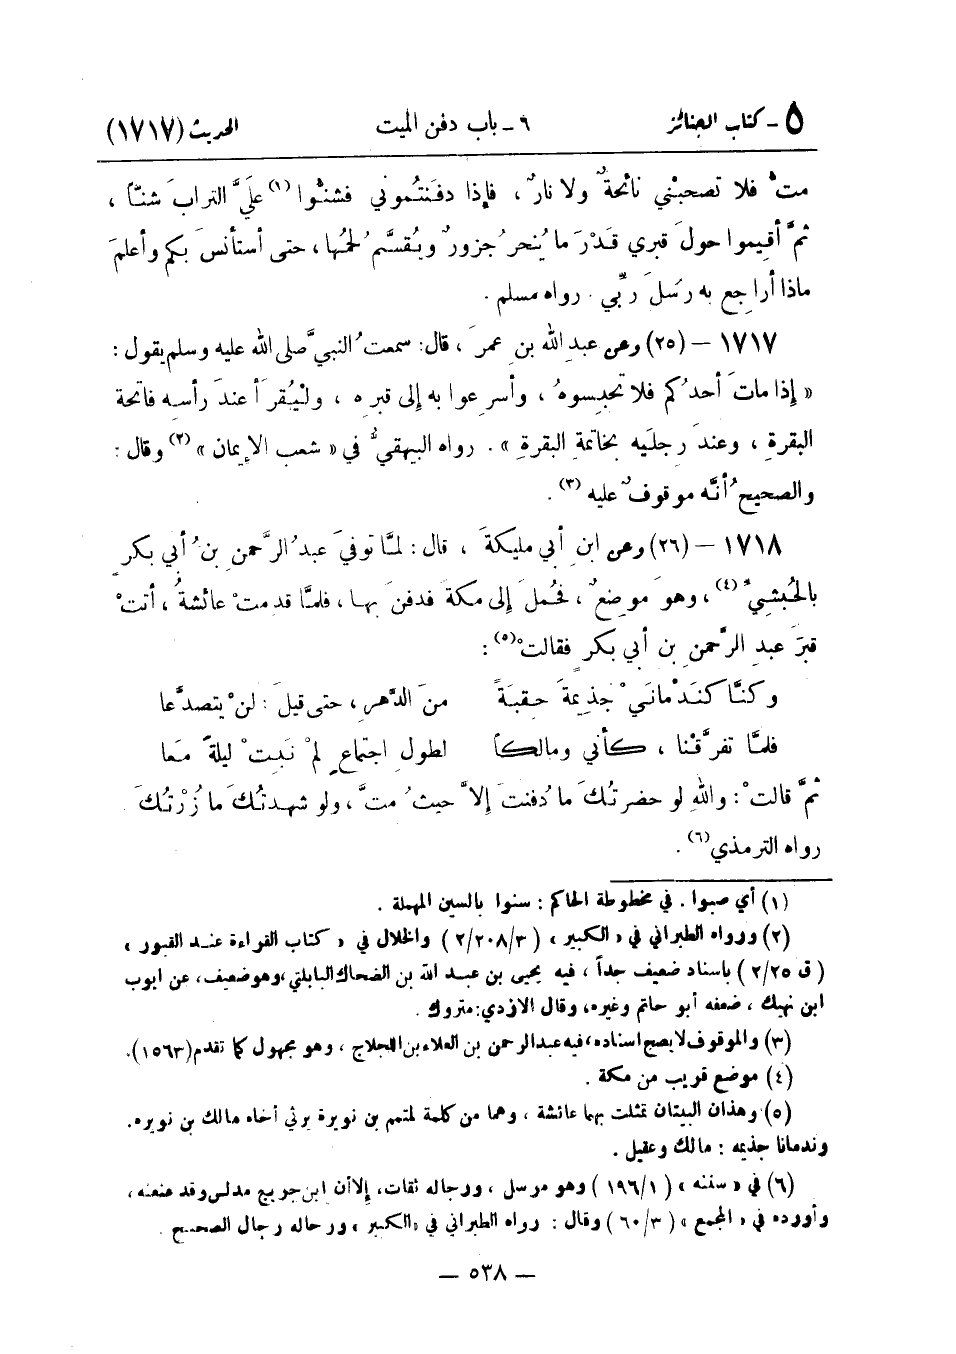 ٥ - كتاب الجنائز ٦ - باب دفن الميت الحديث (١٧١٧)
متُّ فلا تصحبْني نائحةٌ ولا نارٌ ، فإِذا دفَنتُموني فشنُّوا (١) عليَّ الترابَ شنّاً ،
ثمَّ أقيموا حولَ قبري قَدْرَ ما يُنحرُ جزورٌ ويُقسَّمُ لحمُها ، حتى أستأنسَ بكم وأعلمَ
ماذا أراجِعُ به رُسلَ ربِّي . رواه مسلم .
١٧١٧ - (٢٥) وعن عبدِ الله بنِ عمرَ ، قال : سمعتُ النبيَّ صلى الله عليه وسلم يقول :
« إِذا ماتَ أحدُكم فلا تحبِسوهُ ، وأسرِعوا به إِلى قبرِه ، ولْيُقرَأ عندَ رأسِه فاتحة
البقرةِ ، وعندَ رجلَيه بخاتمةِ البقرةِ » . رواه البيهقيُّ في « شعب الإيمان » (٢) وقال :
والصحيحُ أنَّه موقوفٌ عليه (٣) .
١٧١٨ - (٢٦) وعن ابنِ أبي مليكةَ ، قال : لمَّا توفيَ عبدُ الرَّحمنِ بنُ أبي بكرٍ
بالحُبشيِّ (٤) ، وهوَ موضِعٌ ، فحُملَ إِلى مكةَ فدفنَ بها ، فلمَّا قدمتْ عائشةُ ، أتتْ
قبرَ عبدِ الرَّحمنِ بنِ أبي بكرٍ فقالتْ (٥) :
وكنَّا كنَدْمانَيْ جَذيمةَ حِقبَةً منَ الدَّهرِ ، حتى قيلَ : لنْ يتصدَّعا
فلمَّا تفرَّقْنا ، كأني ومالكاً لطولِ اجتماعٍ لمْ نَبِتْ ليلةً مَعا
ثمَّ قالتْ : واللهِ لو حضرتُكَ ما دُفنتَ إِلاَّ حيثُ مُتَّ ، ولو شهدتُكَ ما زُرْتُكَ .
رواه الترمذي (٦) .
(١) أي صبوا . في مخطوطة الحاكم : سنوا بالسين المهملة .
(٢) ورواه الطبراني في « الكبير » ( ٢/٢٠٨/٣ ) والخلال في « كتاب القراءة عند القبور »
( ق ٢/٢٥ ) بإسناد ضعيف جداً ، فيه يحيى بن عبد الله بن الضحاك البابلتي ، وهو ضعيف ، عن ايوب
ابن نهيك ، ضعفه أبو حاتم وغيره ، وقال الازدي : متروك .
(٣) والموقوف لا يصح اسناده ، فيه عبد الرحمن بن العلاء بن اللجلاج ، وهو مجهول كما تقدم (١٥٦٣).
(٤) موضع قريب من مكة .
(٥) وهذان البيتان تمثلت بهما عائشة ، وهما من كلمة لمتمم بن نويرة يرثي أخاه مالك بن نويره.
وندمانا جذيمه : مالك وعقيل .
(٦) في « سننه » ( ١٩٦/١ ) وهو مرسل ، ورجاله ثقات ، إلا أن ابن جريج مدلس وقد عنعنه ،
وأورده في « المجمع » ( ٦٠/٣ ) وقال : رواه الطبراني في « الكبير » ورجاله رجال الصحيح .
— ٥٣٨ —